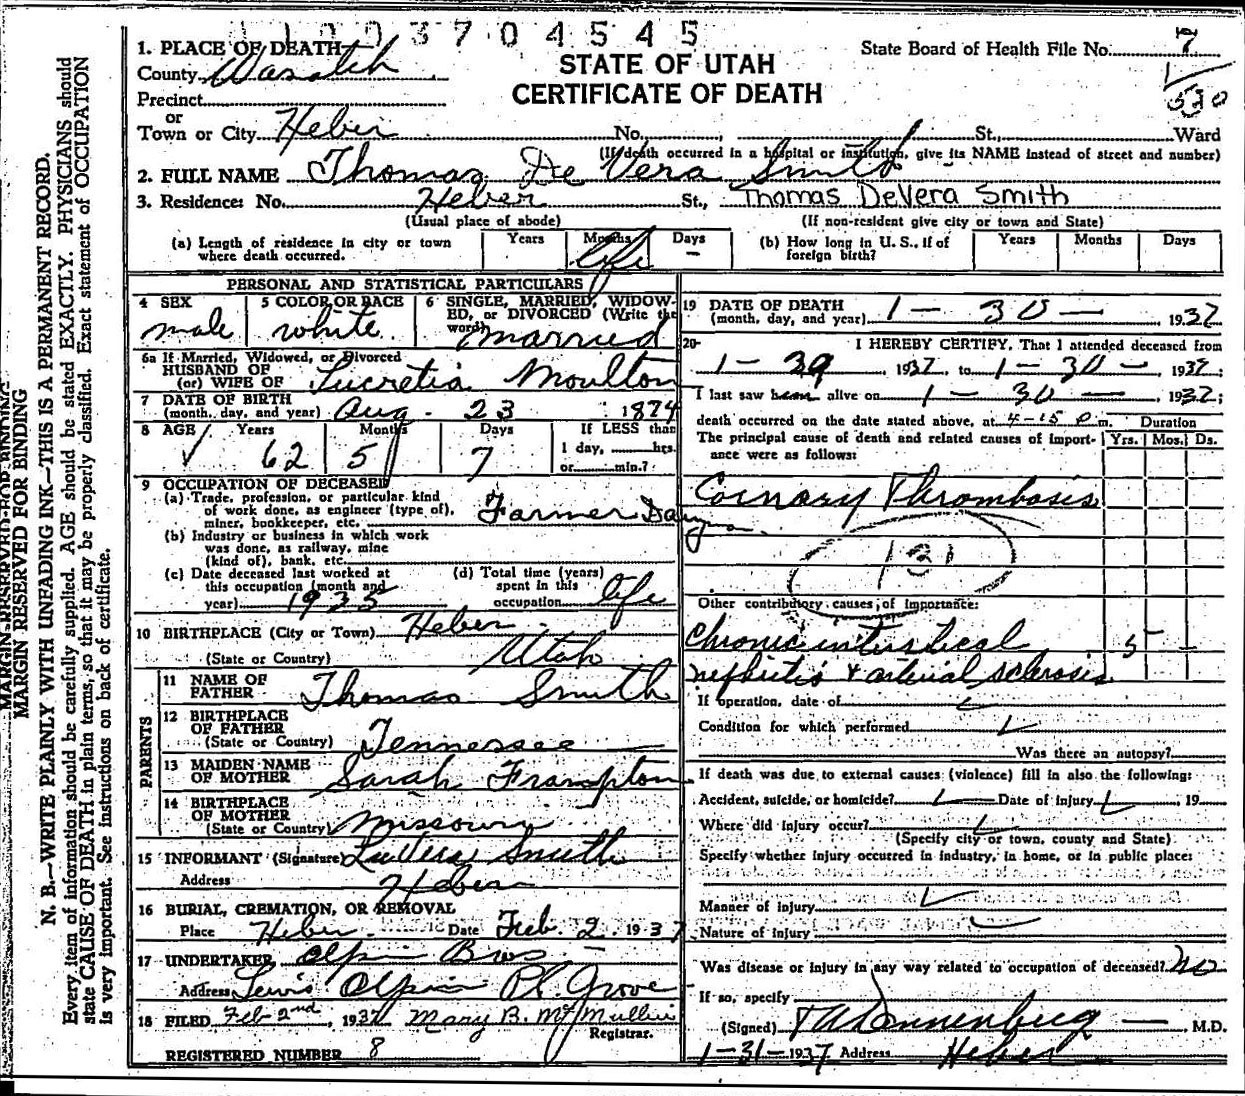 1 0 0 3 7 0 4 5 4 5
1. PLACE OF DEATH
State Board of Health File No. 7
County Wasatch
STATE OF UTAH
530
Precinct
CERTIFICATE OF DEATH
or
Town or City Heber No. , St., Ward
(If death occurred in a hospital or institution, give its NAME instead of street and number)
2. FULL NAME Thomas De Vera Smith
3. Residence: No. Heber St., Thomas DeVera Smith
(Usual place of abode) (If non-resident give city or town and State)
(a) Length of residence in city or town where death occurred. Years Months Days life –
(b) How long in U. S., if of foreign birth? Years Months Days
PERSONAL AND STATISTICAL PARTICULARS
4 SEX male
5 COLOR OR RACE white
6 SINGLE, MARRIED, WIDOWED, or DIVORCED (Write the word) married
6a If Married, Widowed, or Divorced
HUSBAND OF
(or) WIFE OF Lucretia Moulton
7 DATE OF BIRTH
(month, day, and year) Aug. 23 1874
8 AGE Years 62 Months 5 Days 7 If LESS than
1 day, hrs.
or min.?
9 OCCUPATION OF DECEASED
(a) Trade, profession, or particular kind
of work done, as engineer (type of),
miner, bookkeeper, etc. Farmer
(b) Industry or business in which work
was done, as railway, mine
(kind of), bank, etc.
(c) Date deceased last worked at
this occupation (month and
year) 1935
(d) Total time (years)
spent in this
occupation life
10 BIRTHPLACE (City or Town) Heber
(State or Country) Utah
PARENTS
11 NAME OF
FATHER Thomas Smith
12 BIRTHPLACE
OF FATHER
(State or Country) Tennessee
13 MAIDEN NAME
OF MOTHER Sarah Frampton
14 BIRTHPLACE
OF MOTHER
(State or Country) Missouri
15 INFORMANT (Signature) LaVera Smith
Address Heber
16 BURIAL, CREMATION, OR REMOVAL
Place Heber Date Feb. 2 1937
17 UNDERTAKER Olpin Bros
Address Lewis Olpin Pl. Grove
18 FILED Feb 2nd, 1937 Mary B. McMullin
Registrar.
REGISTERED NUMBER 8
19 DATE OF DEATH
(month, day, and year) 1 – 30 – 1937
20- I HEREBY CERTIFY, That I attended deceased from
1 – 29, 1937, to 1 – 30 – 1937;
I last saw him alive on 1 – 30 – 1937;
death occurred on the date stated above, at 4-15 P m. Duration
The principal cause of death and related causes of importance were as follows: Yrs. Mos. Ds.
Coronary Thrombosis
131
Other contributory causes of importance:
Chronic interstitial 5 –
nephritis & arterial sclerosis
If operation, date of
Condition for which performed
Was there an autopsy?
If death was due to external causes (violence) fill in also the following:
Accident, suicide, or homicide? Date of injury , 19
Where did injury occur?
(Specify city or town, county and State)
Specify whether injury occurred in industry, in home, or in public place:
Manner of injury
Nature of injury
Was disease or injury in any way related to occupation of deceased? no
If so, specify
(Signed) , M.D.
1-31-1937 Address Heber
MARGIN RESERVED FOR BINDING
MARGIN RESERVED FOR BINDING
N. B.—WRITE PLAINLY WITH UNFADING INK—THIS IS A PERMANENT RECORD.
Every item of information should be carefully supplied. AGE should be stated EXACTLY. PHYSICIANS should
state CAUSE OF DEATH in plain terms, so that it may be properly classified. Exact statement of OCCUPATION
is very important. See instructions on back of certificate.